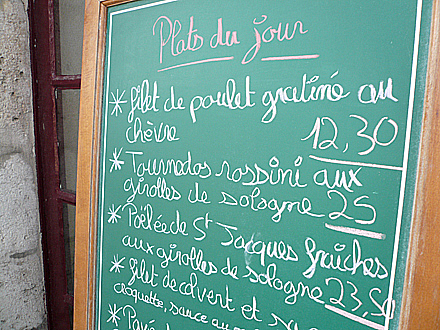 Plats du jour
* filet de poulet gratiné au
chèvre 12,30
* Tournedos rossini aux
girolles de sologne 25
* Poêlée de St Jacques fraîches
aux girolles de sologne 23,50
* filet de
croquette, sauce au
* Pavé